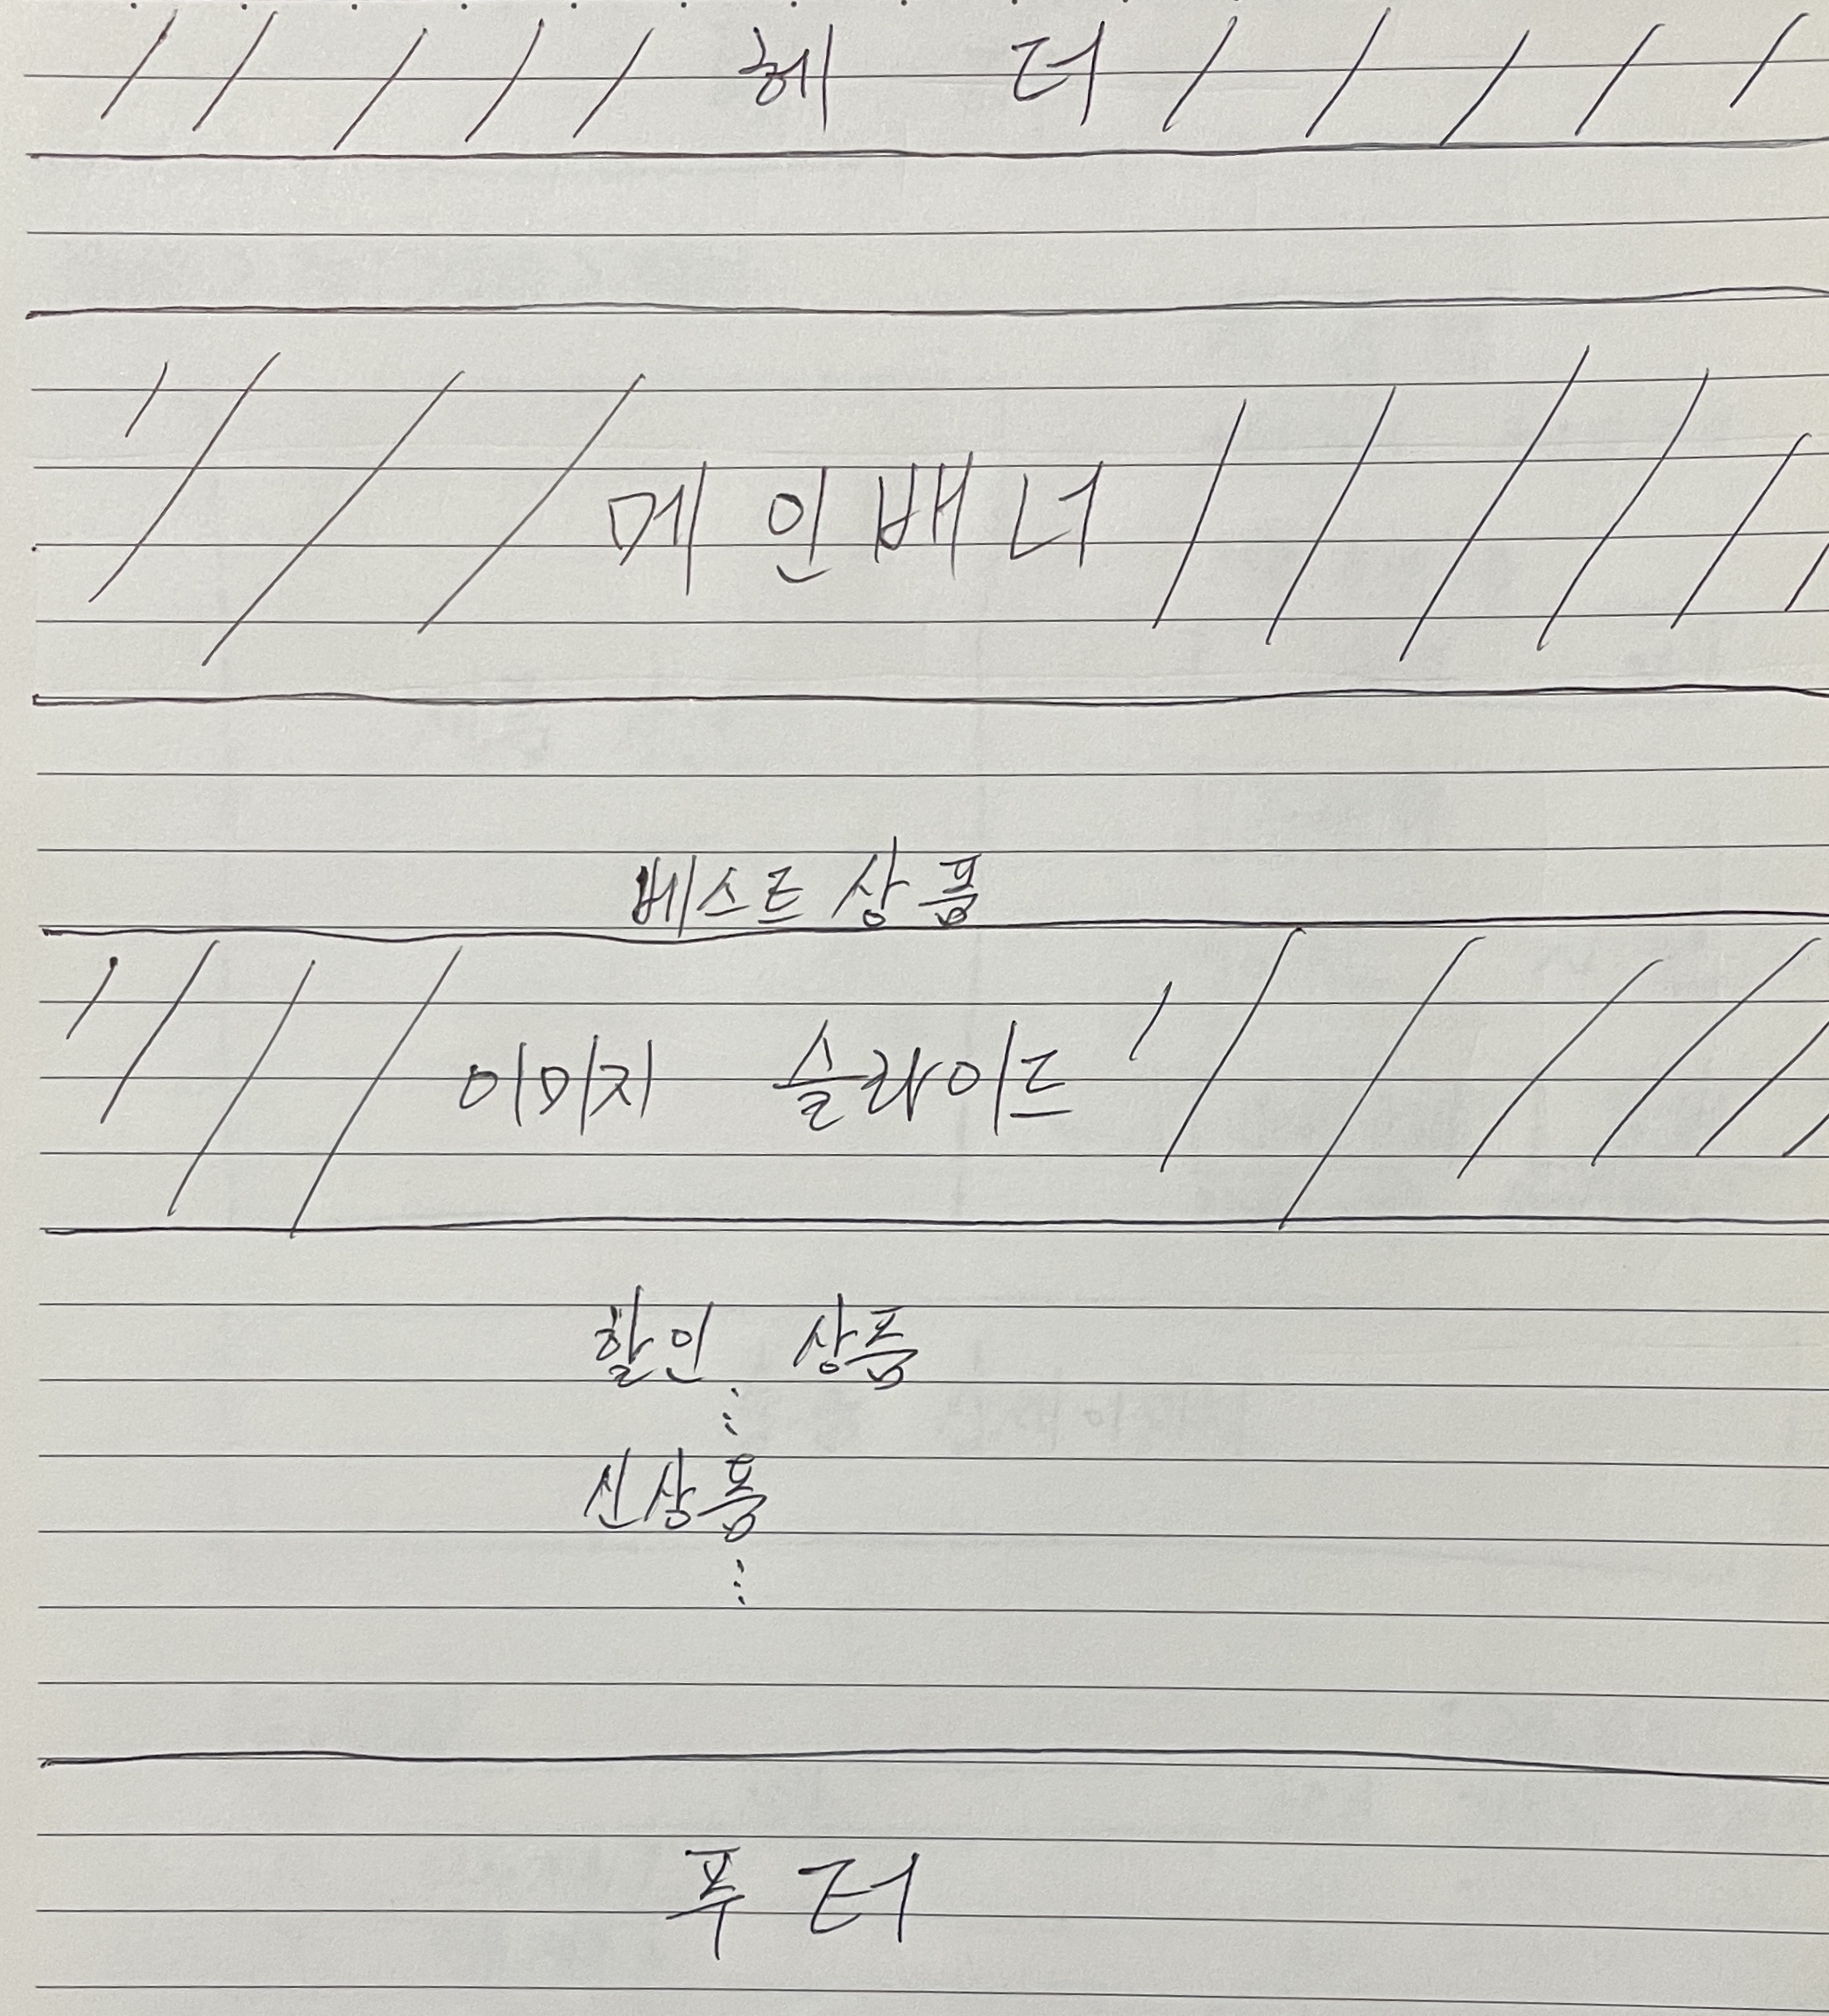 헤 더
메인배너
베스트 상품
이미지 슬라이드
할인 상품
⋮
신상품
⋮
푸 터